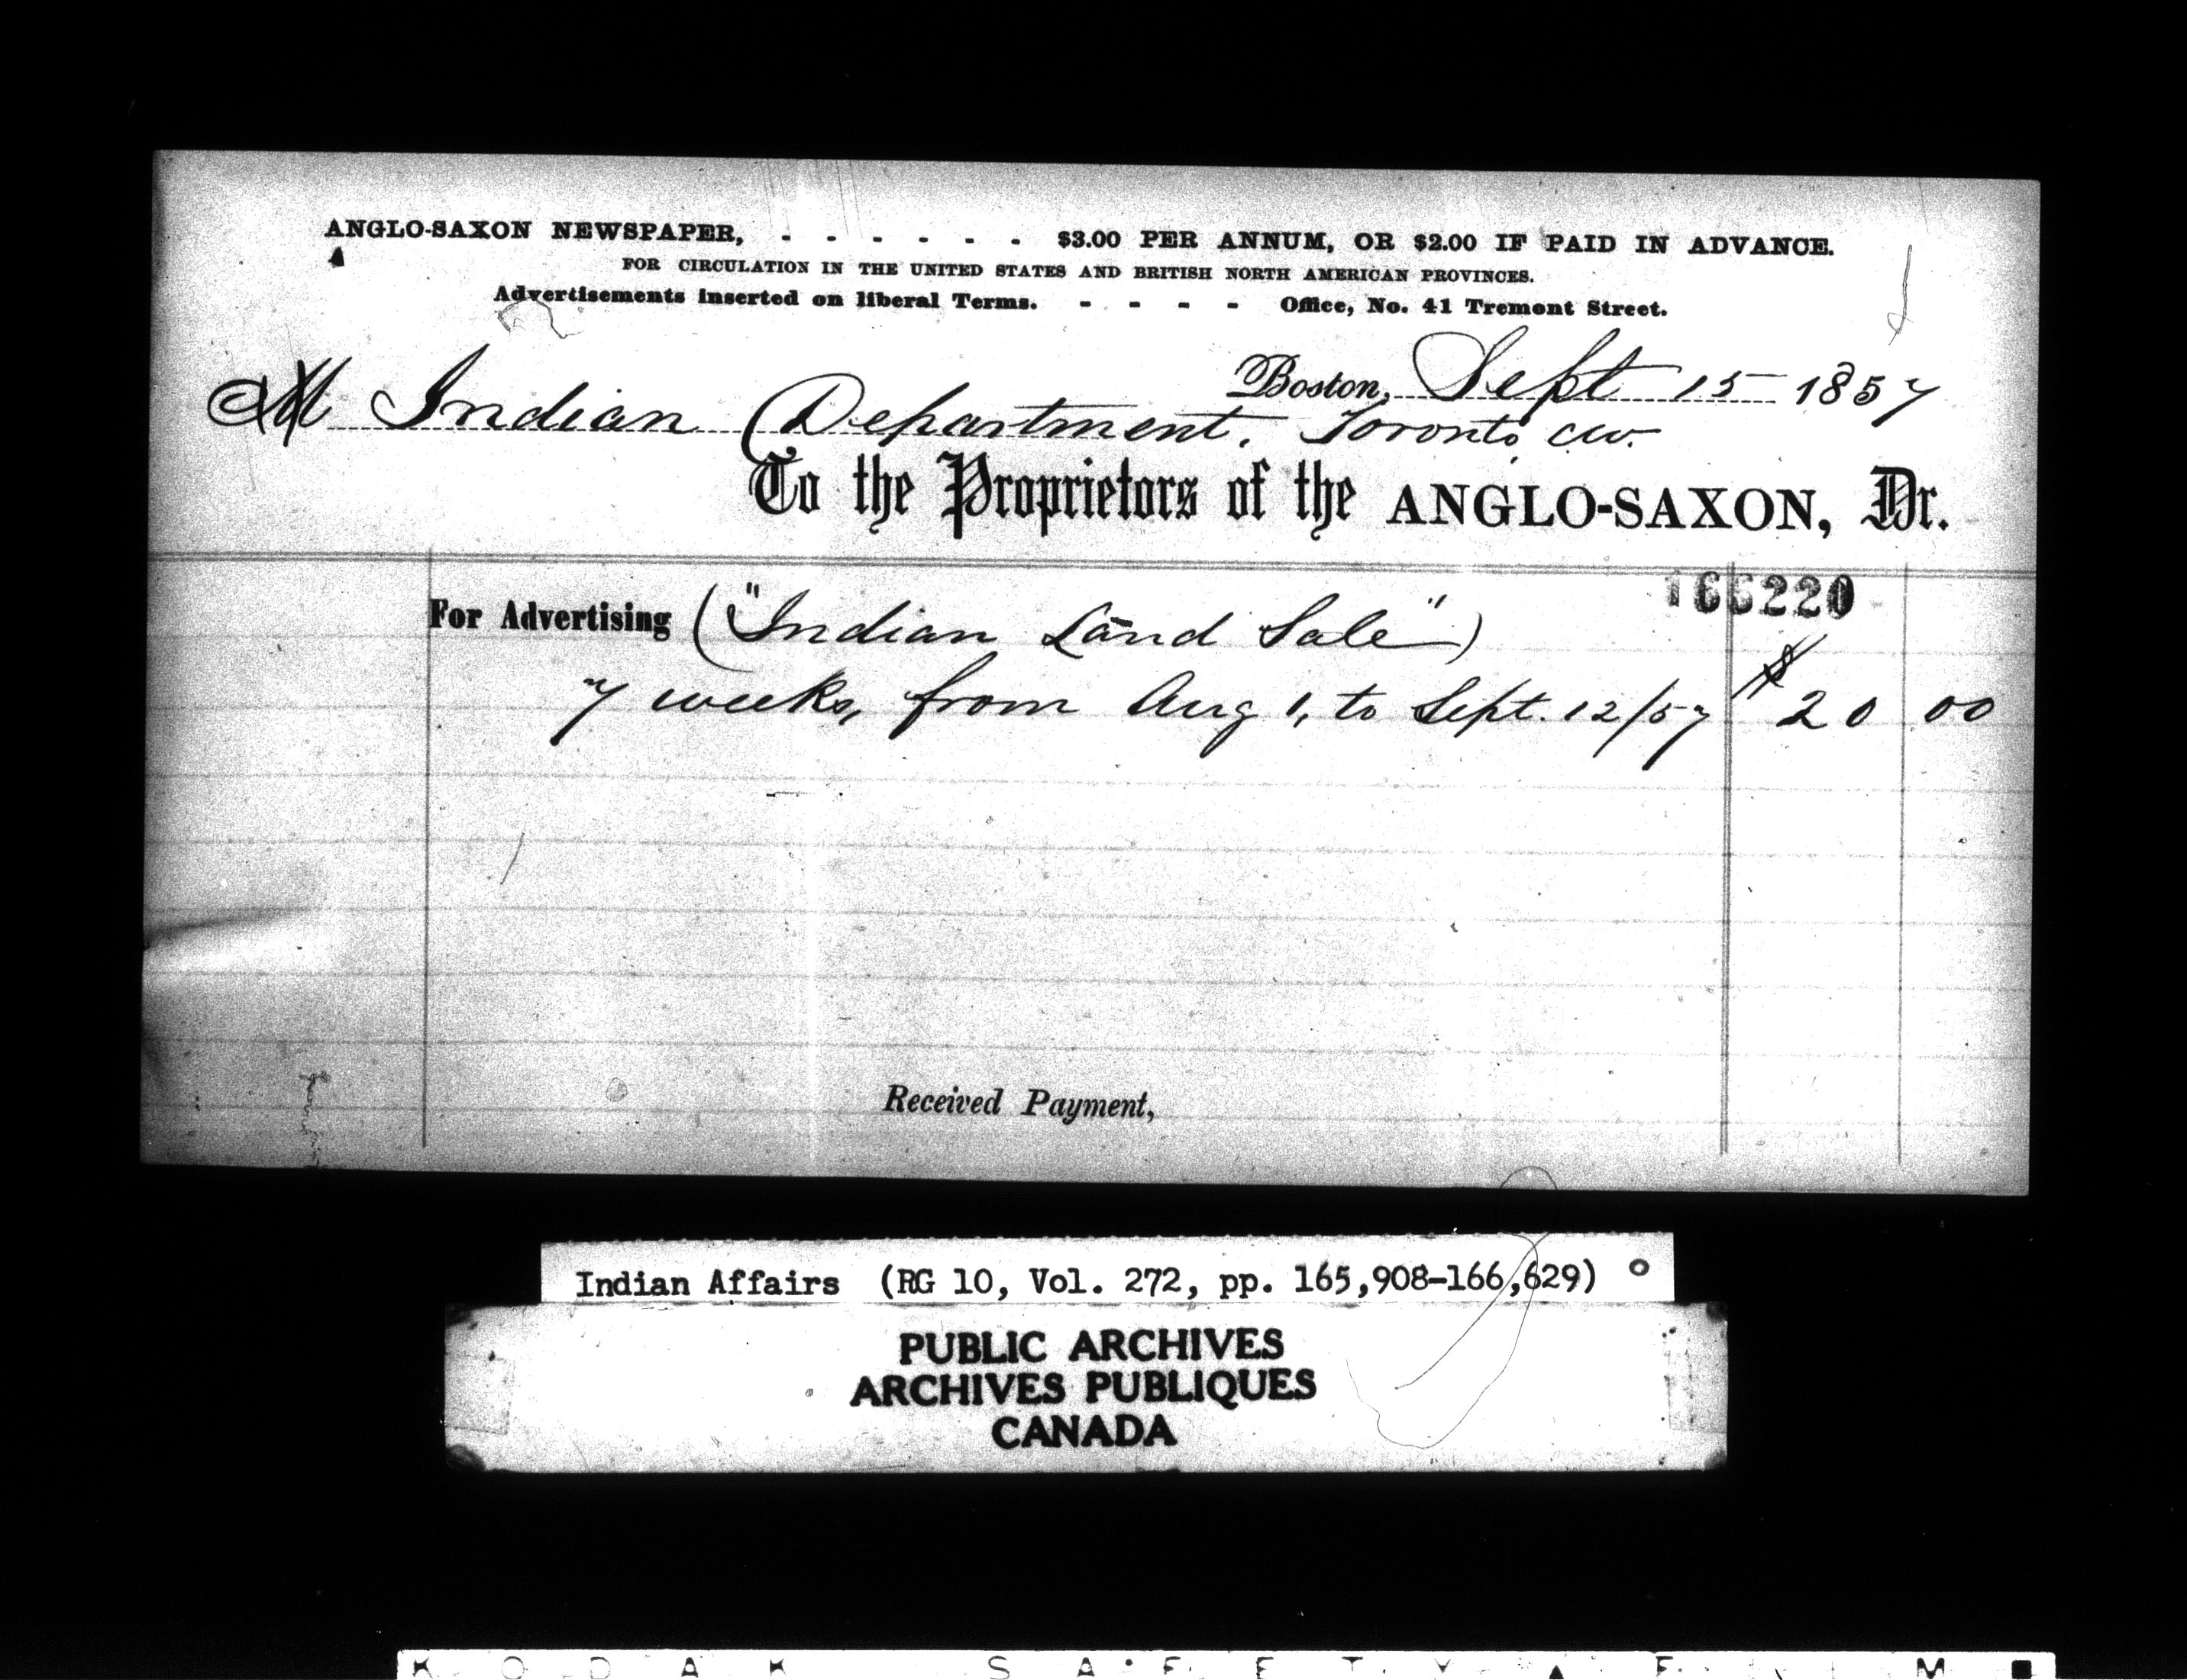 ANGLO-SAXON NEWSPAPER, - - - - - - $3.00 PER ANNUM, OR $2.00 IF PAID IN ADVANCE.
FOR CIRCULATION IN THE UNITED STATES AND BRITISH NORTH AMERICAN PROVINCES.
Advertisements inserted on liberal Terms. - - - - Office, No. 41 Tremont Street.
Boston, Sept 15 1857
M Indian Department, Toronto CW.
To the Proprietors of the ANGLO-SAXON, Dr.
166220
For Advertising ("Indian Land Sale")
7 weeks, from Aug 1, to Sept. 12/57 $20 00
Received Payment,
Indian Affairs (RG 10, Vol. 272, pp. 165,908-166,629)
PUBLIC ARCHIVES
ARCHIVES PUBLIQUES
CANADA
KODAK SAFETY FILM